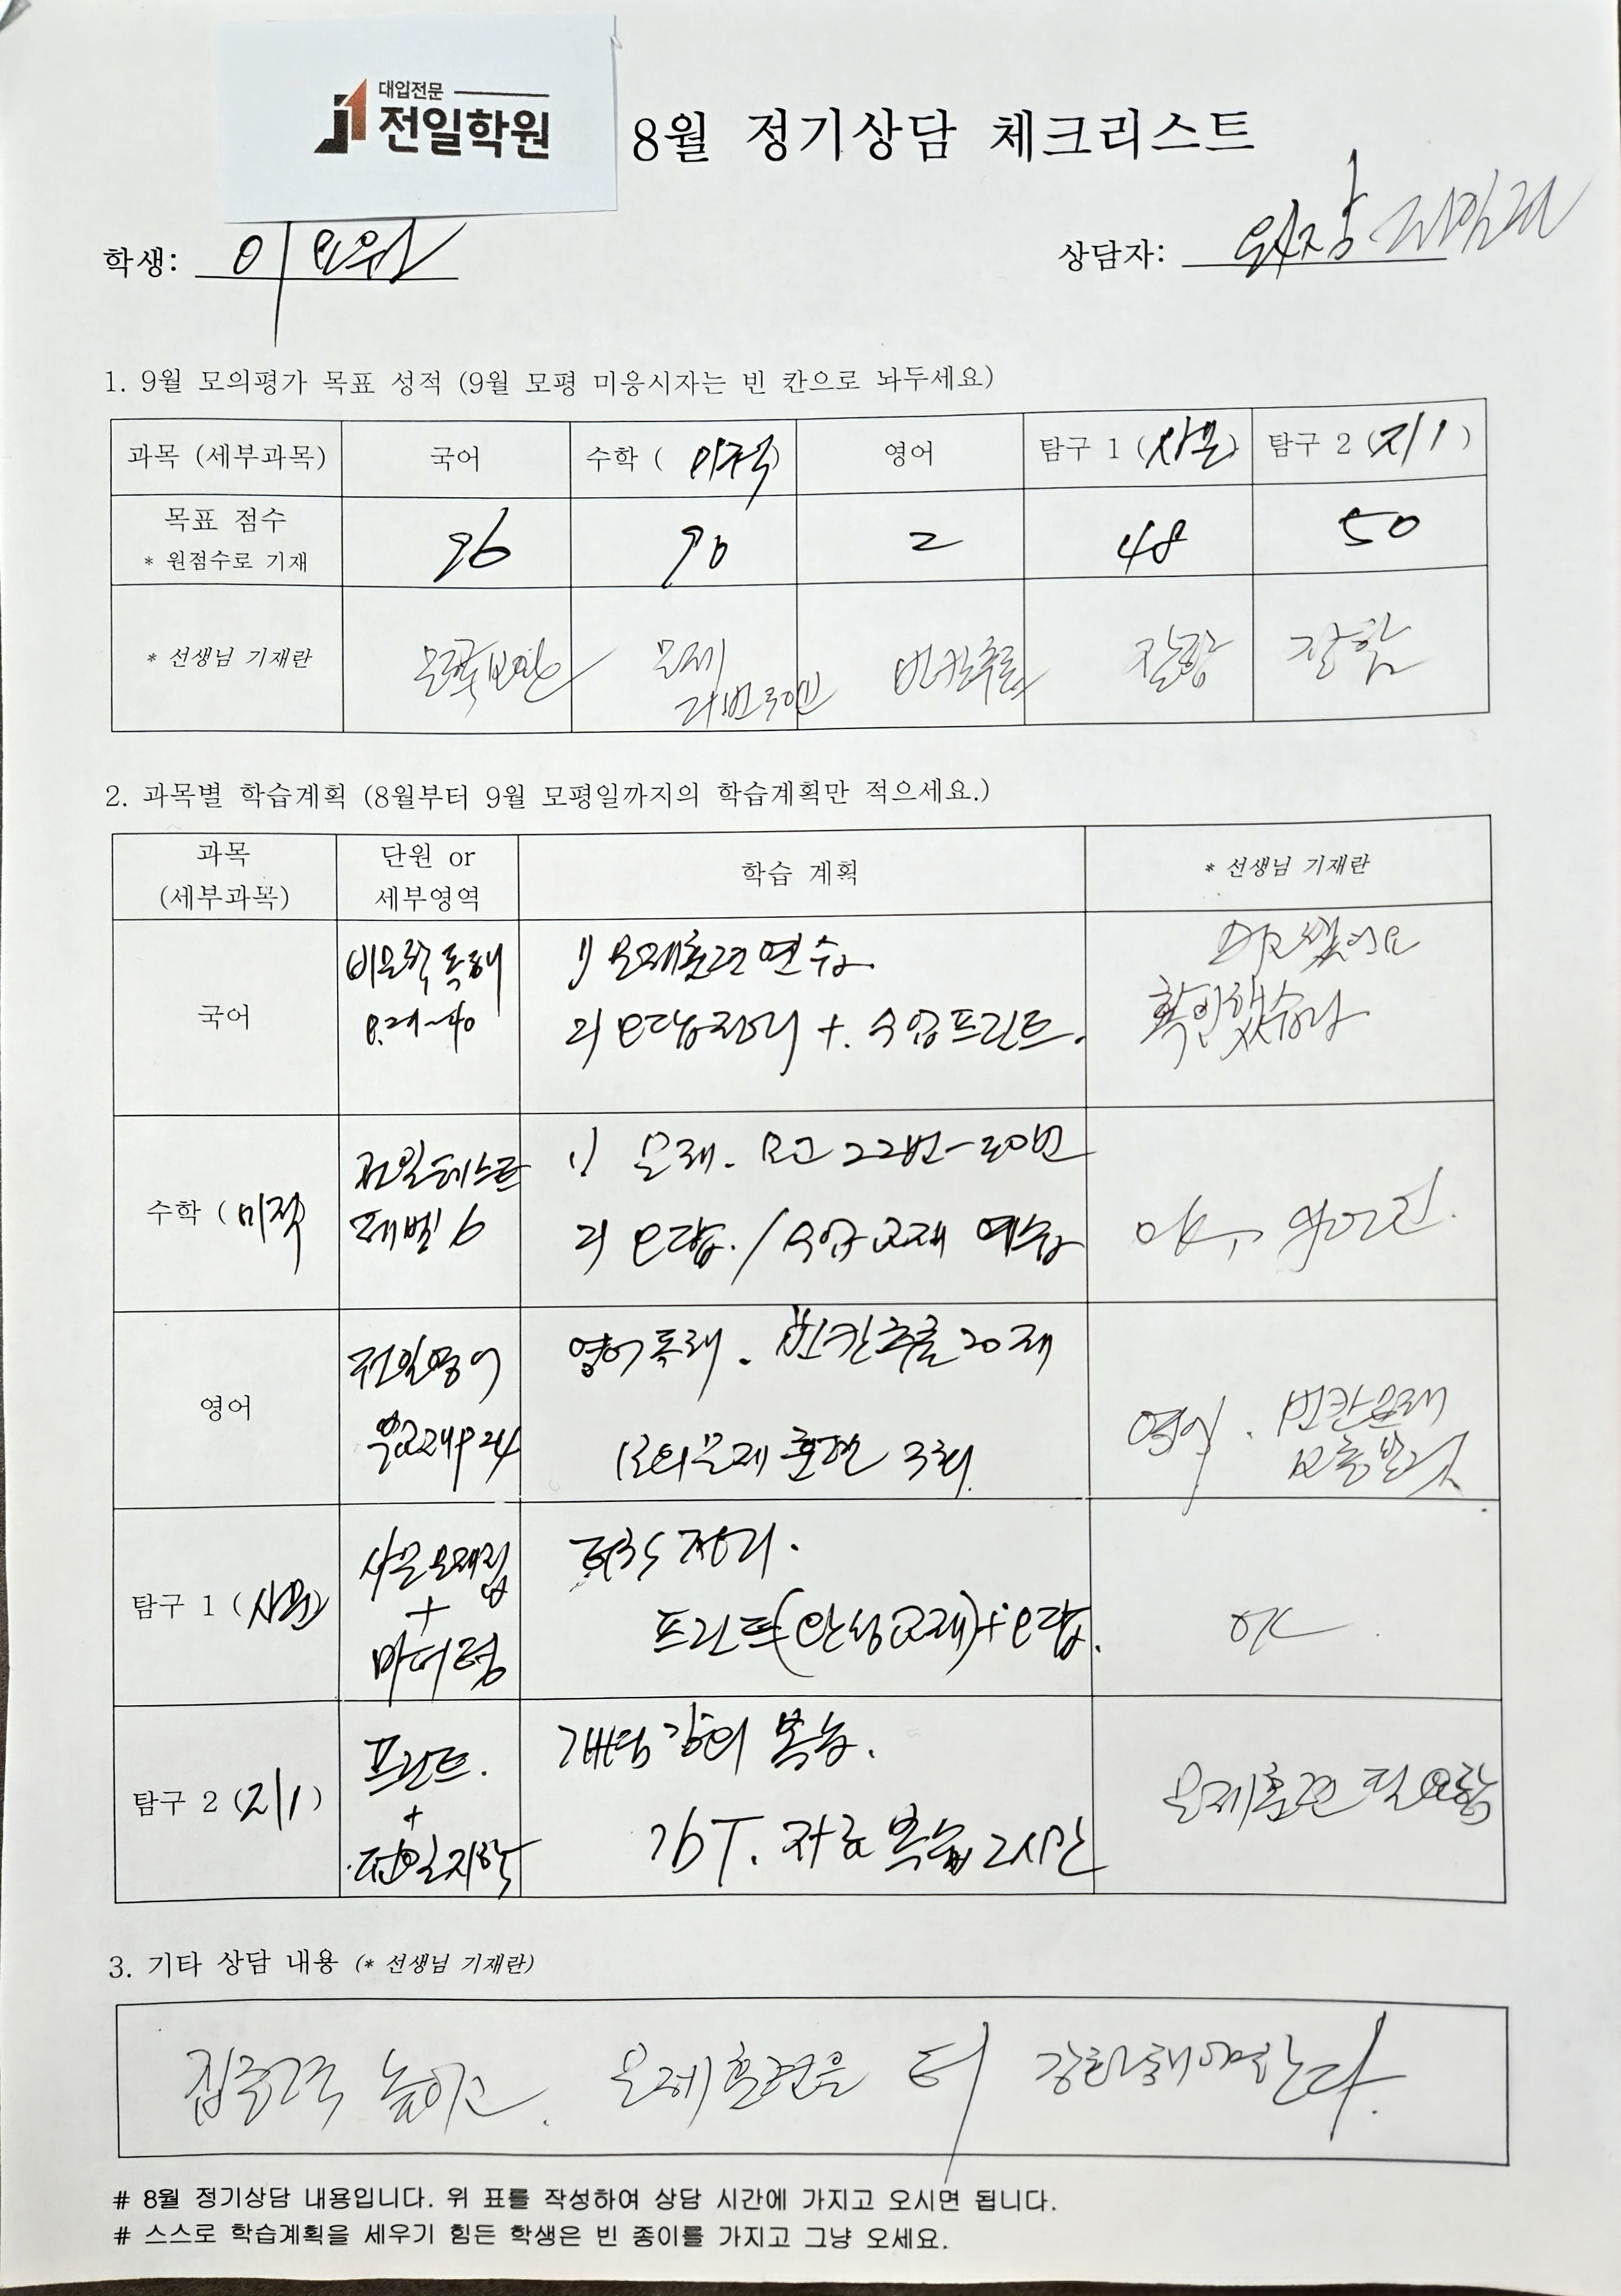 대입전문
전일학원
8월 정기상담 체크리스트
학생: 이요원
상담자: 원장
1. 9월 모의평가 목표 성적 (9월 모평 미응시자는 빈 칸으로 놔두세요)
과목 (세부과목) 국어 수학 (미적) 영어 탐구 1 (사문) 탐구 2 (지1)
목표 점수 96 90 2 48 50
* 원점수로 기재
* 선생님 기재란 보완 문제 빈칸추론 잘함 잘함
2. 과목별 학습계획 (8월부터 9월 모평일까지의 학습계획만 적으세요.)
과목
(세부과목)
단원 or
세부영역
학습 계획
* 선생님 기재란
국어
비문학 독해
P.29~40
1) 문제훈련 연습
2) 오답정리 +. 수업프린트.
확인했습니다
수학 (미적
전일테스트
레벨 6
1) 문제. 모고 22번-30번
2) 오답. / 수업교재 예습
영어
전일영어
P24
영어독해. 빈칸추론 20제
모의문제 훈련 3회.
영어. 빈칸문제
탐구 1 (사문)
사문문제집
+
마더텅
정리.
프린트(완성교재)+오답.
OK
탐구 2 (지1)
프린트.
+
전일지학
개념강의 복습.
자료복습 2시간
문제훈련 필요함
3. 기타 상담 내용 (* 선생님 기재란)
집중력 높이고. 문제훈련을 더 강화해야한다.
# 8월 정기상담 내용입니다. 위 표를 작성하여 상담 시간에 가지고 오시면 됩니다.
# 스스로 학습계획을 세우기 힘든 학생은 빈 종이를 가지고 그냥 오세요.